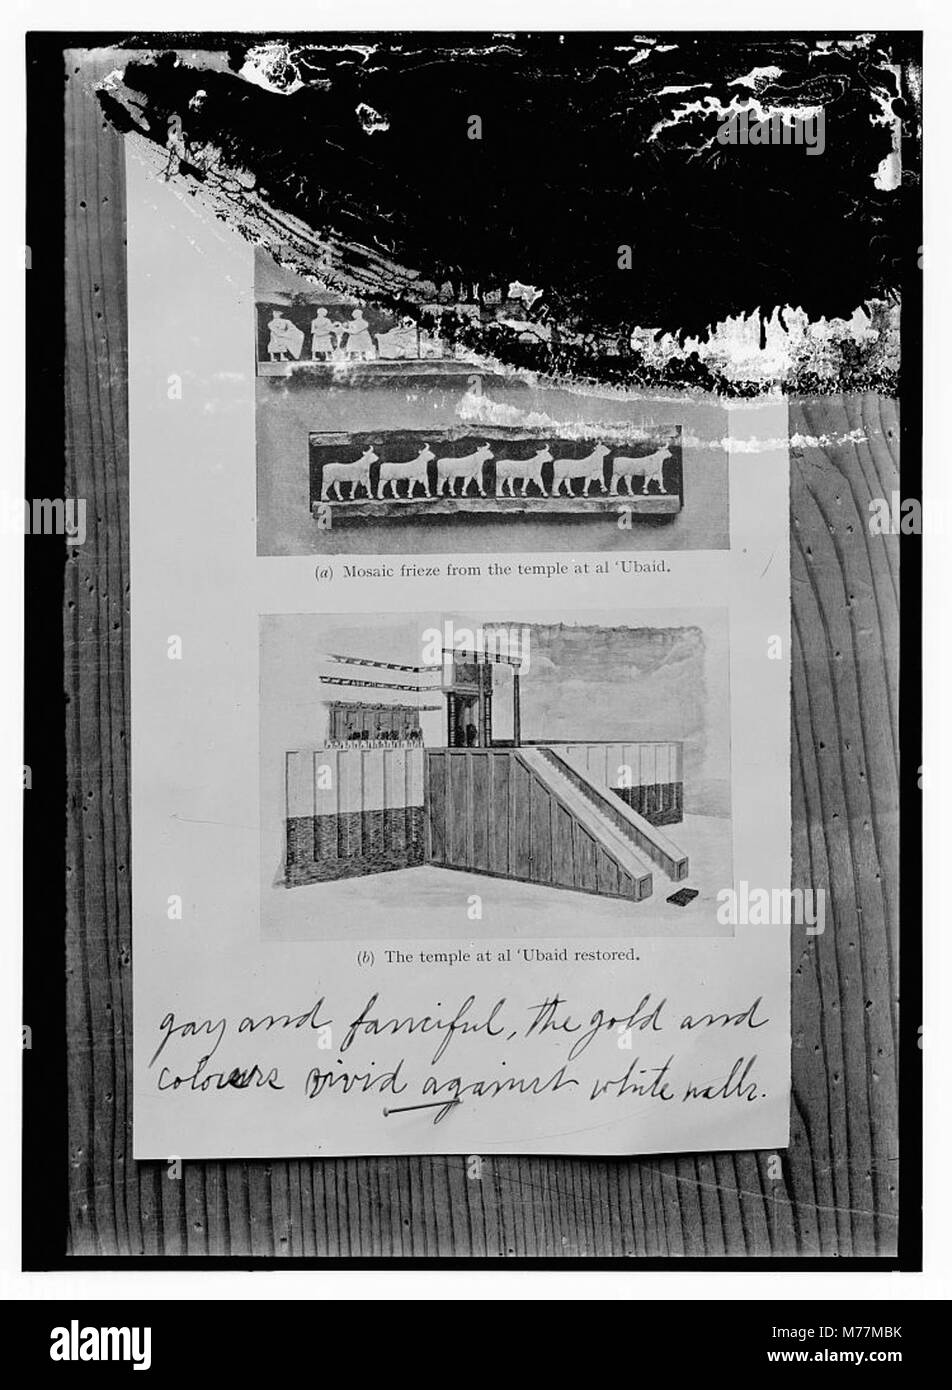 (a) Mosaic frieze from the temple at al ‘Ubaid.
(b) The temple at al ‘Ubaid restored.
gay and fanciful, the gold and
colours vivid against white walls.
alamy
Image ID: M77MBK
www.alamy.com